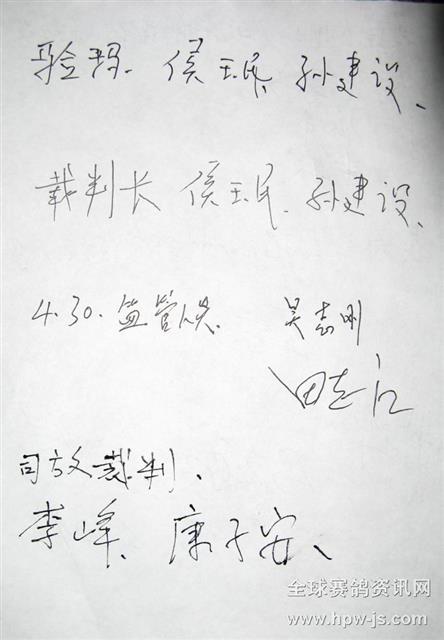 验鸽、侯玉民、孙建设、
裁判长 侯玉民、孙建设、
4.30.监管人员 吴志刚
田志江
司放裁判、
李峰、康子安、
全球赛鸽资讯网
www.hpw-js.com